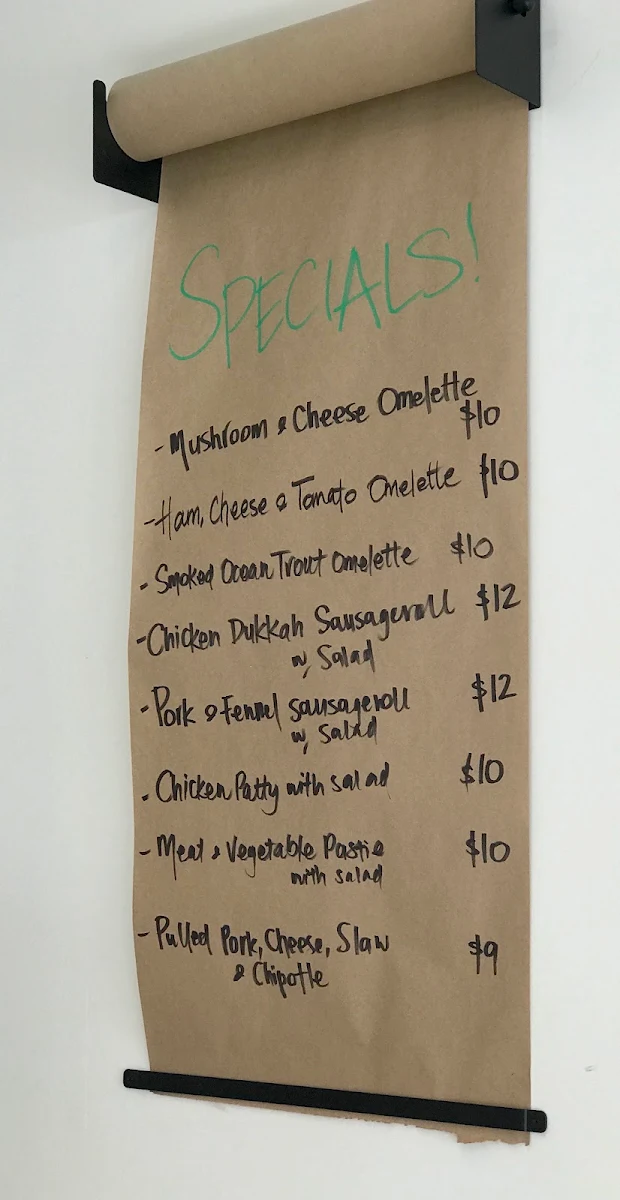 SPECIALS!
- Mushroom & Cheese Omelette
$10
- Ham, Cheese & Tomato Omelette $10
- Smoked Ocean Trout Omelette $10
- Chicken Dukkah Sausageroll $12
w/ Salad
- Pork & Fennel Sausageroll $12
w/ Salad
- Chicken Patty with salad $10
- Meat & Vegetable Pastie $10
with salad
- Pulled Pork, Cheese, Slaw $9
& Chipotle